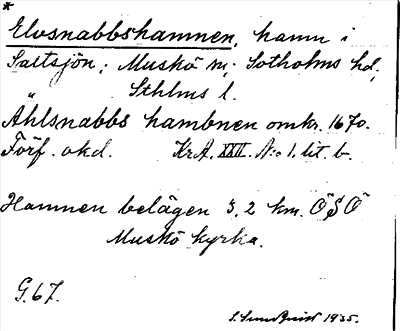 *
Elvsnabbshamnen, hamn i
Saltsjön; Muskö sn; Sotholms hd,
Sthlms l.
Åhlsnabbs hambnen omkr. 1670.
Förf. okd. KrA. XXII. N:o 1. lit. b.
Hamnen belägen 3,2 km. ÖSÖ
Muskö kyrka.
G.67.
S. Sundquist 1935.